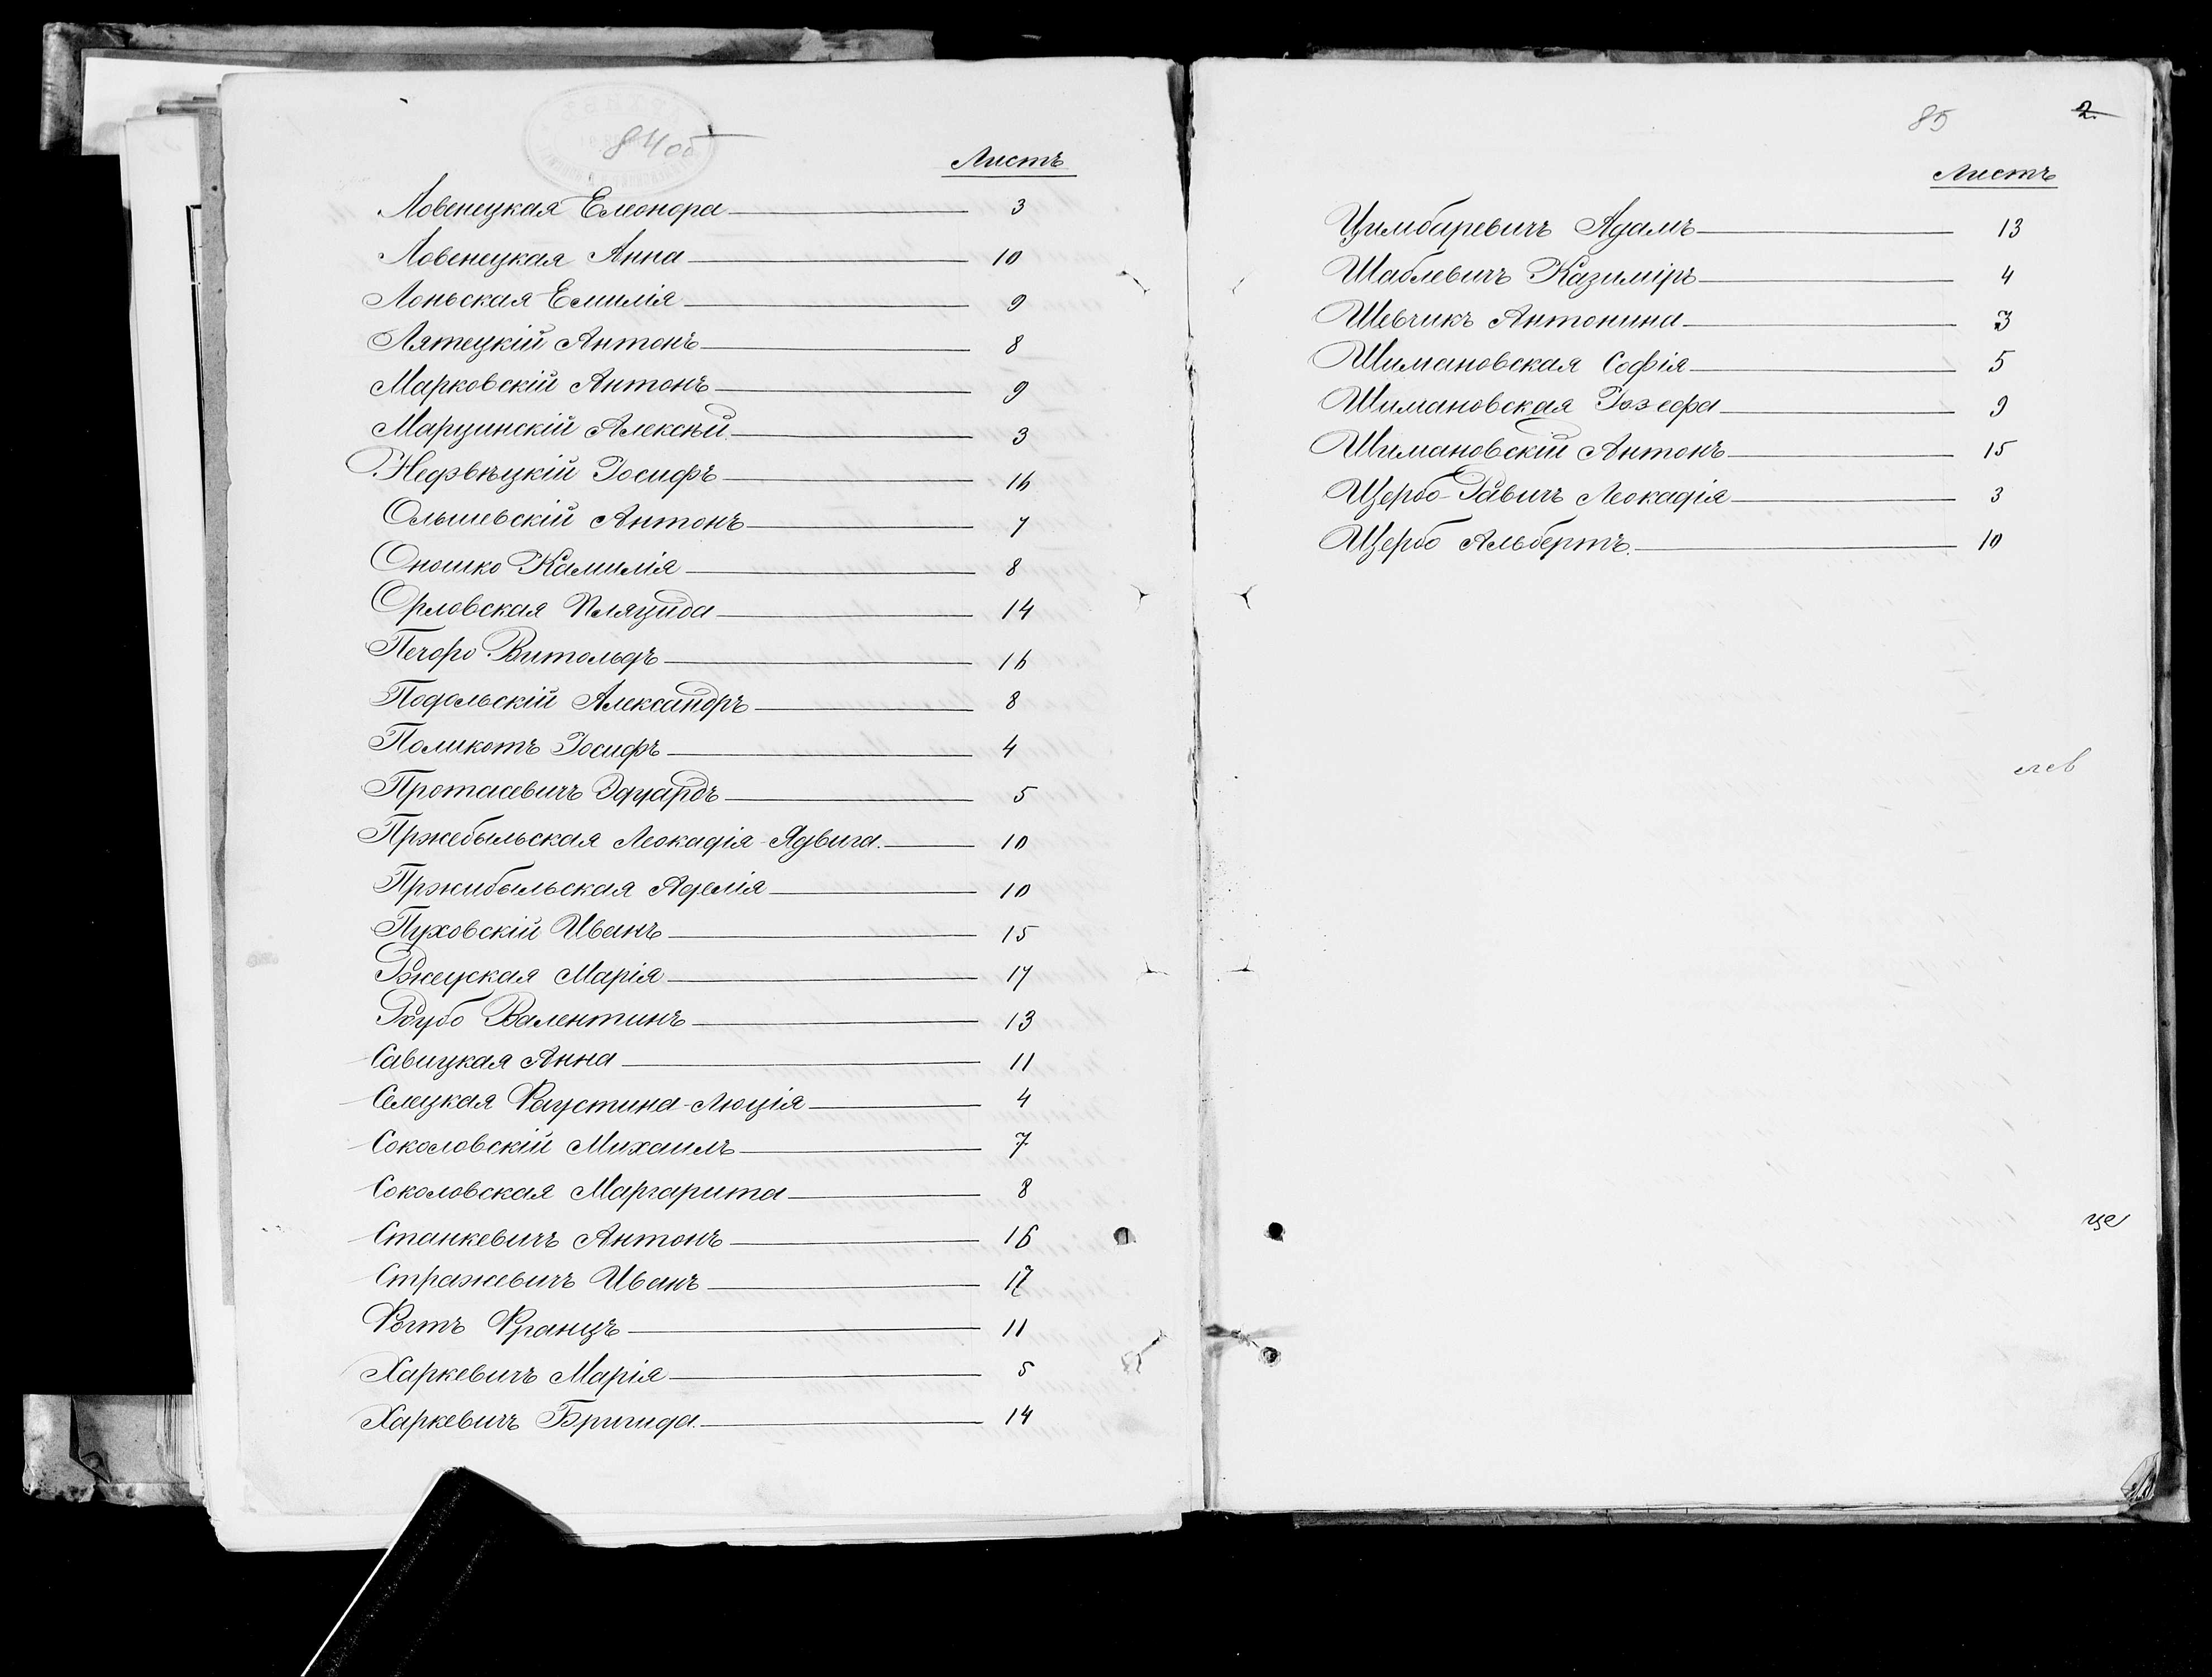 84об
Листъ
Ловенецкая Елеонора 3
Ловенецкая Анна 10
Лоньская Емилія 9
Лятецкій Антонъ 8
Марковскій Антонъ 9
Марцинскій Алексѣй 3
Недзвѣцкій Іосифъ 16
Ольшевскій Антонъ 7
Оношко Камилія 8
Орловская Пляцида 14
Печоро Витольдъ 16
Подольскій Александръ 8
Поликотъ Іосифъ 4
Протасевичъ Эдуардъ 5
Пржебыльская Леокадія-Ядвига. 10
Пржибыльская Аделія 10
Пуховскій Иванъ 15
Ржеуская Марія 17
Роубо Валентинъ 13
Савицкая Анна 11
Селецкая Фаустина-Люція 4
Соколовскій Михаилъ 7
Соколовская Маргарита 8
Станкевичъ Антонъ 16
Стражевичъ Иванъ 17
Фогтъ Францъ 11
Харкевичъ Марія 5
Харкевичъ Бригида. 14
85 2
Листъ
Цимбаревичъ Адамъ 13
Шаблевичъ Казиміръ 4
Шевчикъ Антонина 3
Шимановская Софія 5
Шимановская Іозефа 9
Шимановскій Антонъ 15
Щербо-Равичъ Леокадія 3
Щербо Альбертъ. 10